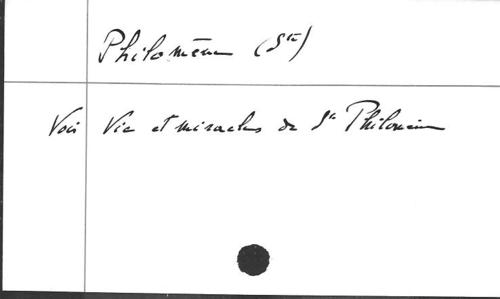 Philomène (Ste)
Voir Vie et miracles de Ste Philomène